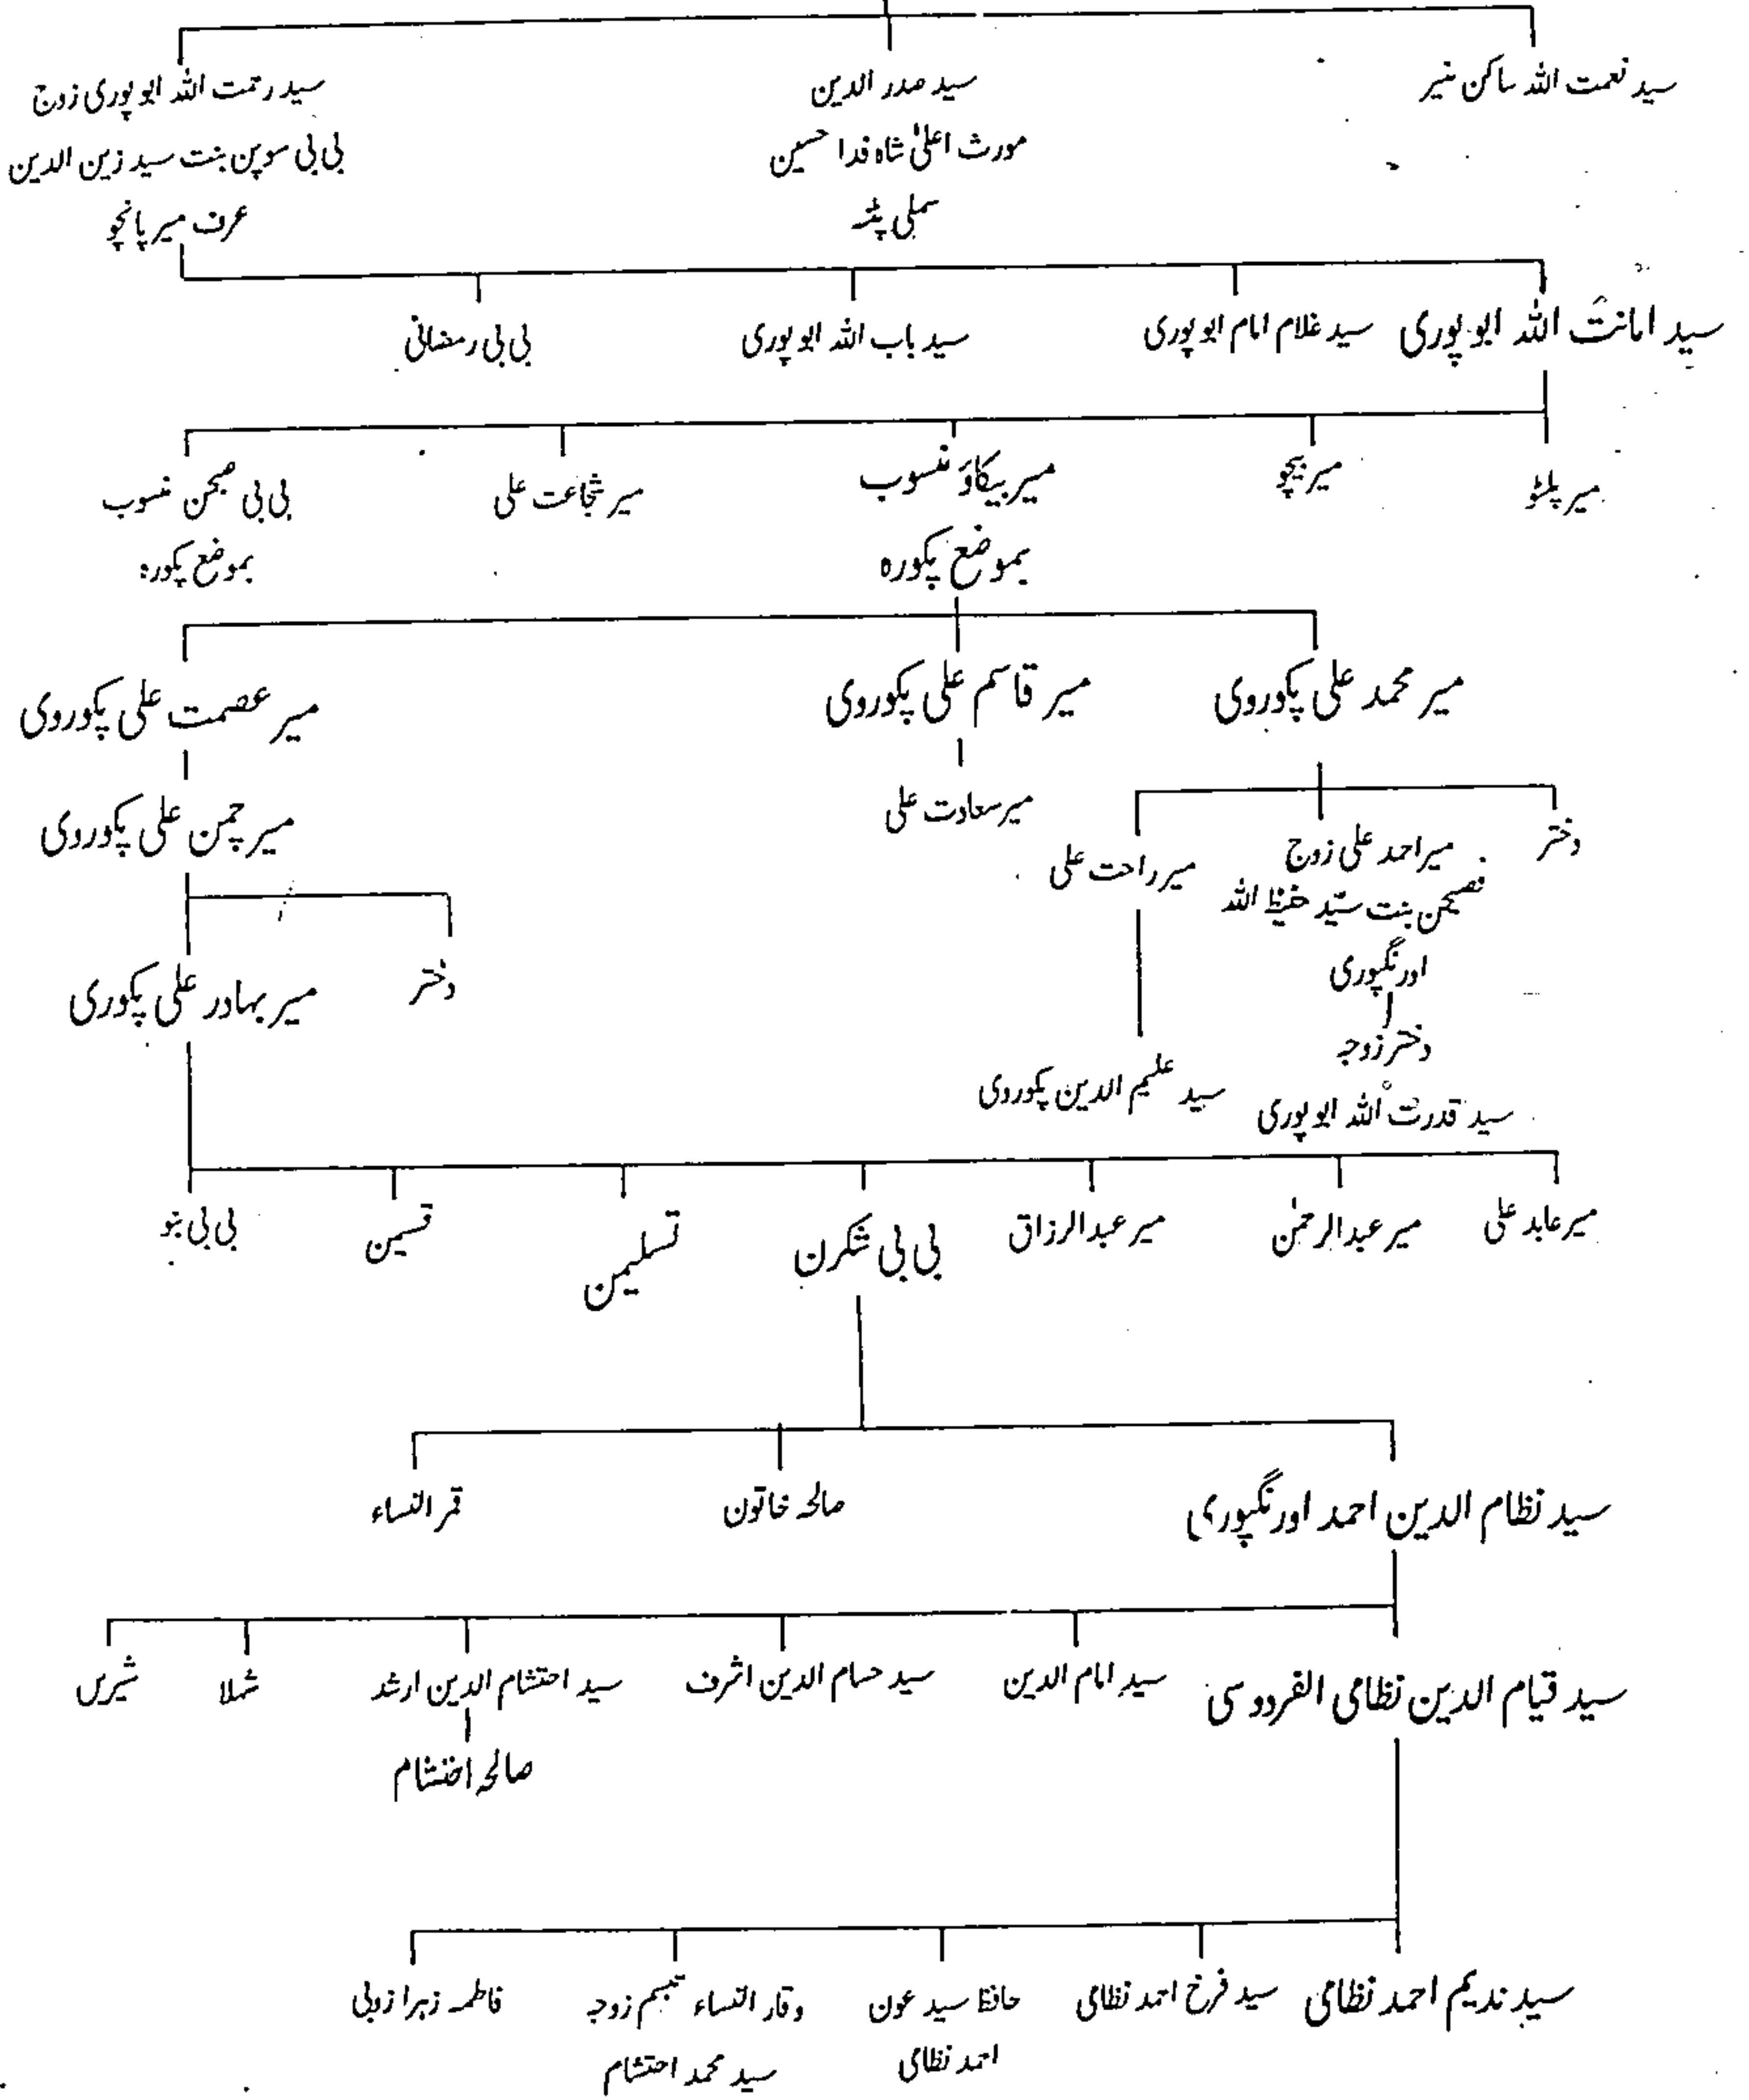 سید نعمت اللہ ساکن منیر
سید صدر الدین
مورث اعلیٰ شاہ فدا حسین
سملی پٹنہ
سید رحمت اللہ ابوپوری زوج
بی بی سوپن بنت سید زین الدین
عرف میر پانچو
سید امانت اللہ ابوپوری
سید غلام امام ابوپوری
سید باب اللہ ابوپوری
بی بی رمضانی
میر پلٹو
میر بیچو
میر بیکاؤ منسوب
بموضع پکورہ
میر شجاعت علی
بی بی صبحن منسوب
بموضع پکورہ
میر محمد علی پکوروی
میر قاسم علی پکوروی
میر عصمت علی پکوروی
دختر
میر احمد علی زوج
فصیحن بنت سید حفیظ اللہ
اورنگپوری
میر راحت علی
میر سعادت علی
میر چمن علی پکوروی
دختر زوجہ
سید قدرت اللہ ابوپوری
سید علیم الدین پکوروی
دختر
میر بہادر علی پکوری
میر عابد علی
میر عبدالرحمٰن
میر عبدالرزاق
بی بی شکرن
تسلیمن
قسیمن
بی بی بنو
سید نظام الدین احمد اورنگپوری
صالحہ خاتون
قمر النساء
سید قیام الدین نظامی الفردوسی
سید امام الدین
سید حسام الدین اشرف
سید احتشام الدین ارشد
شہلا
شیریں
صالحہ احتشام
سید ندیم احمد نظامی
سید فرخ احمد نظامی
حافظ سید عون
احمد نظامی
وقار النساء تبسم زوجہ
سید محمد احتشام
فاطمہ زہرا زوبی